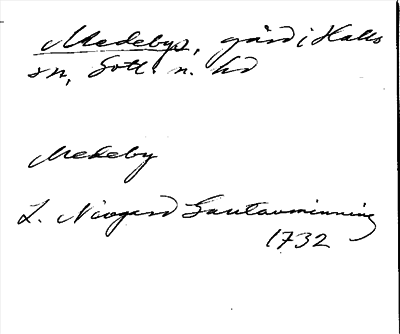 Medebys, gård i Halls
sn, Gotl. n. hd
Medeby
L. Niogerd Gautauminning
1732